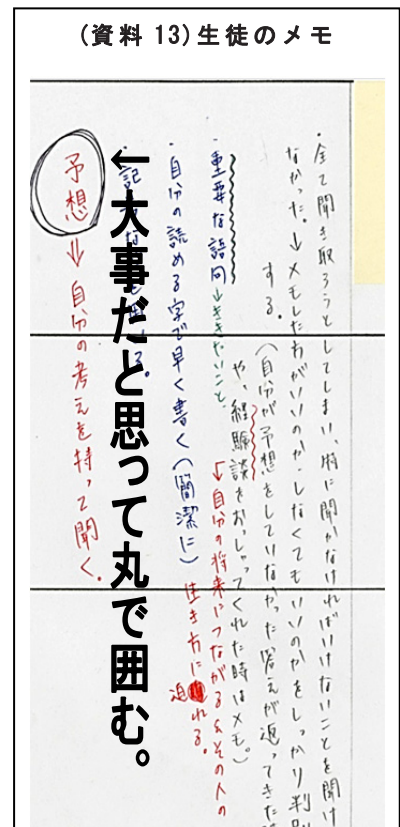 (資料 13)生徒のメモ
・全て聞き取ろうとしてしまい、特に聞かなければいけないことを聞け
なかった。→メモした方がいいのか、しなくてもいいのかをしっかり判別
する。
(自分が予想をしていなかった答えが返ってきた
や、経験談をおっしゃってくれた時はメモ。)
・重要な語句→ききたいこと。
←自分の将来につながる&その人の
生き方に迫れる。
・自分の読める字で早く書く(簡潔に)
←大事だと思って丸で囲む。
予想⇒自分の考えを持って聞く。